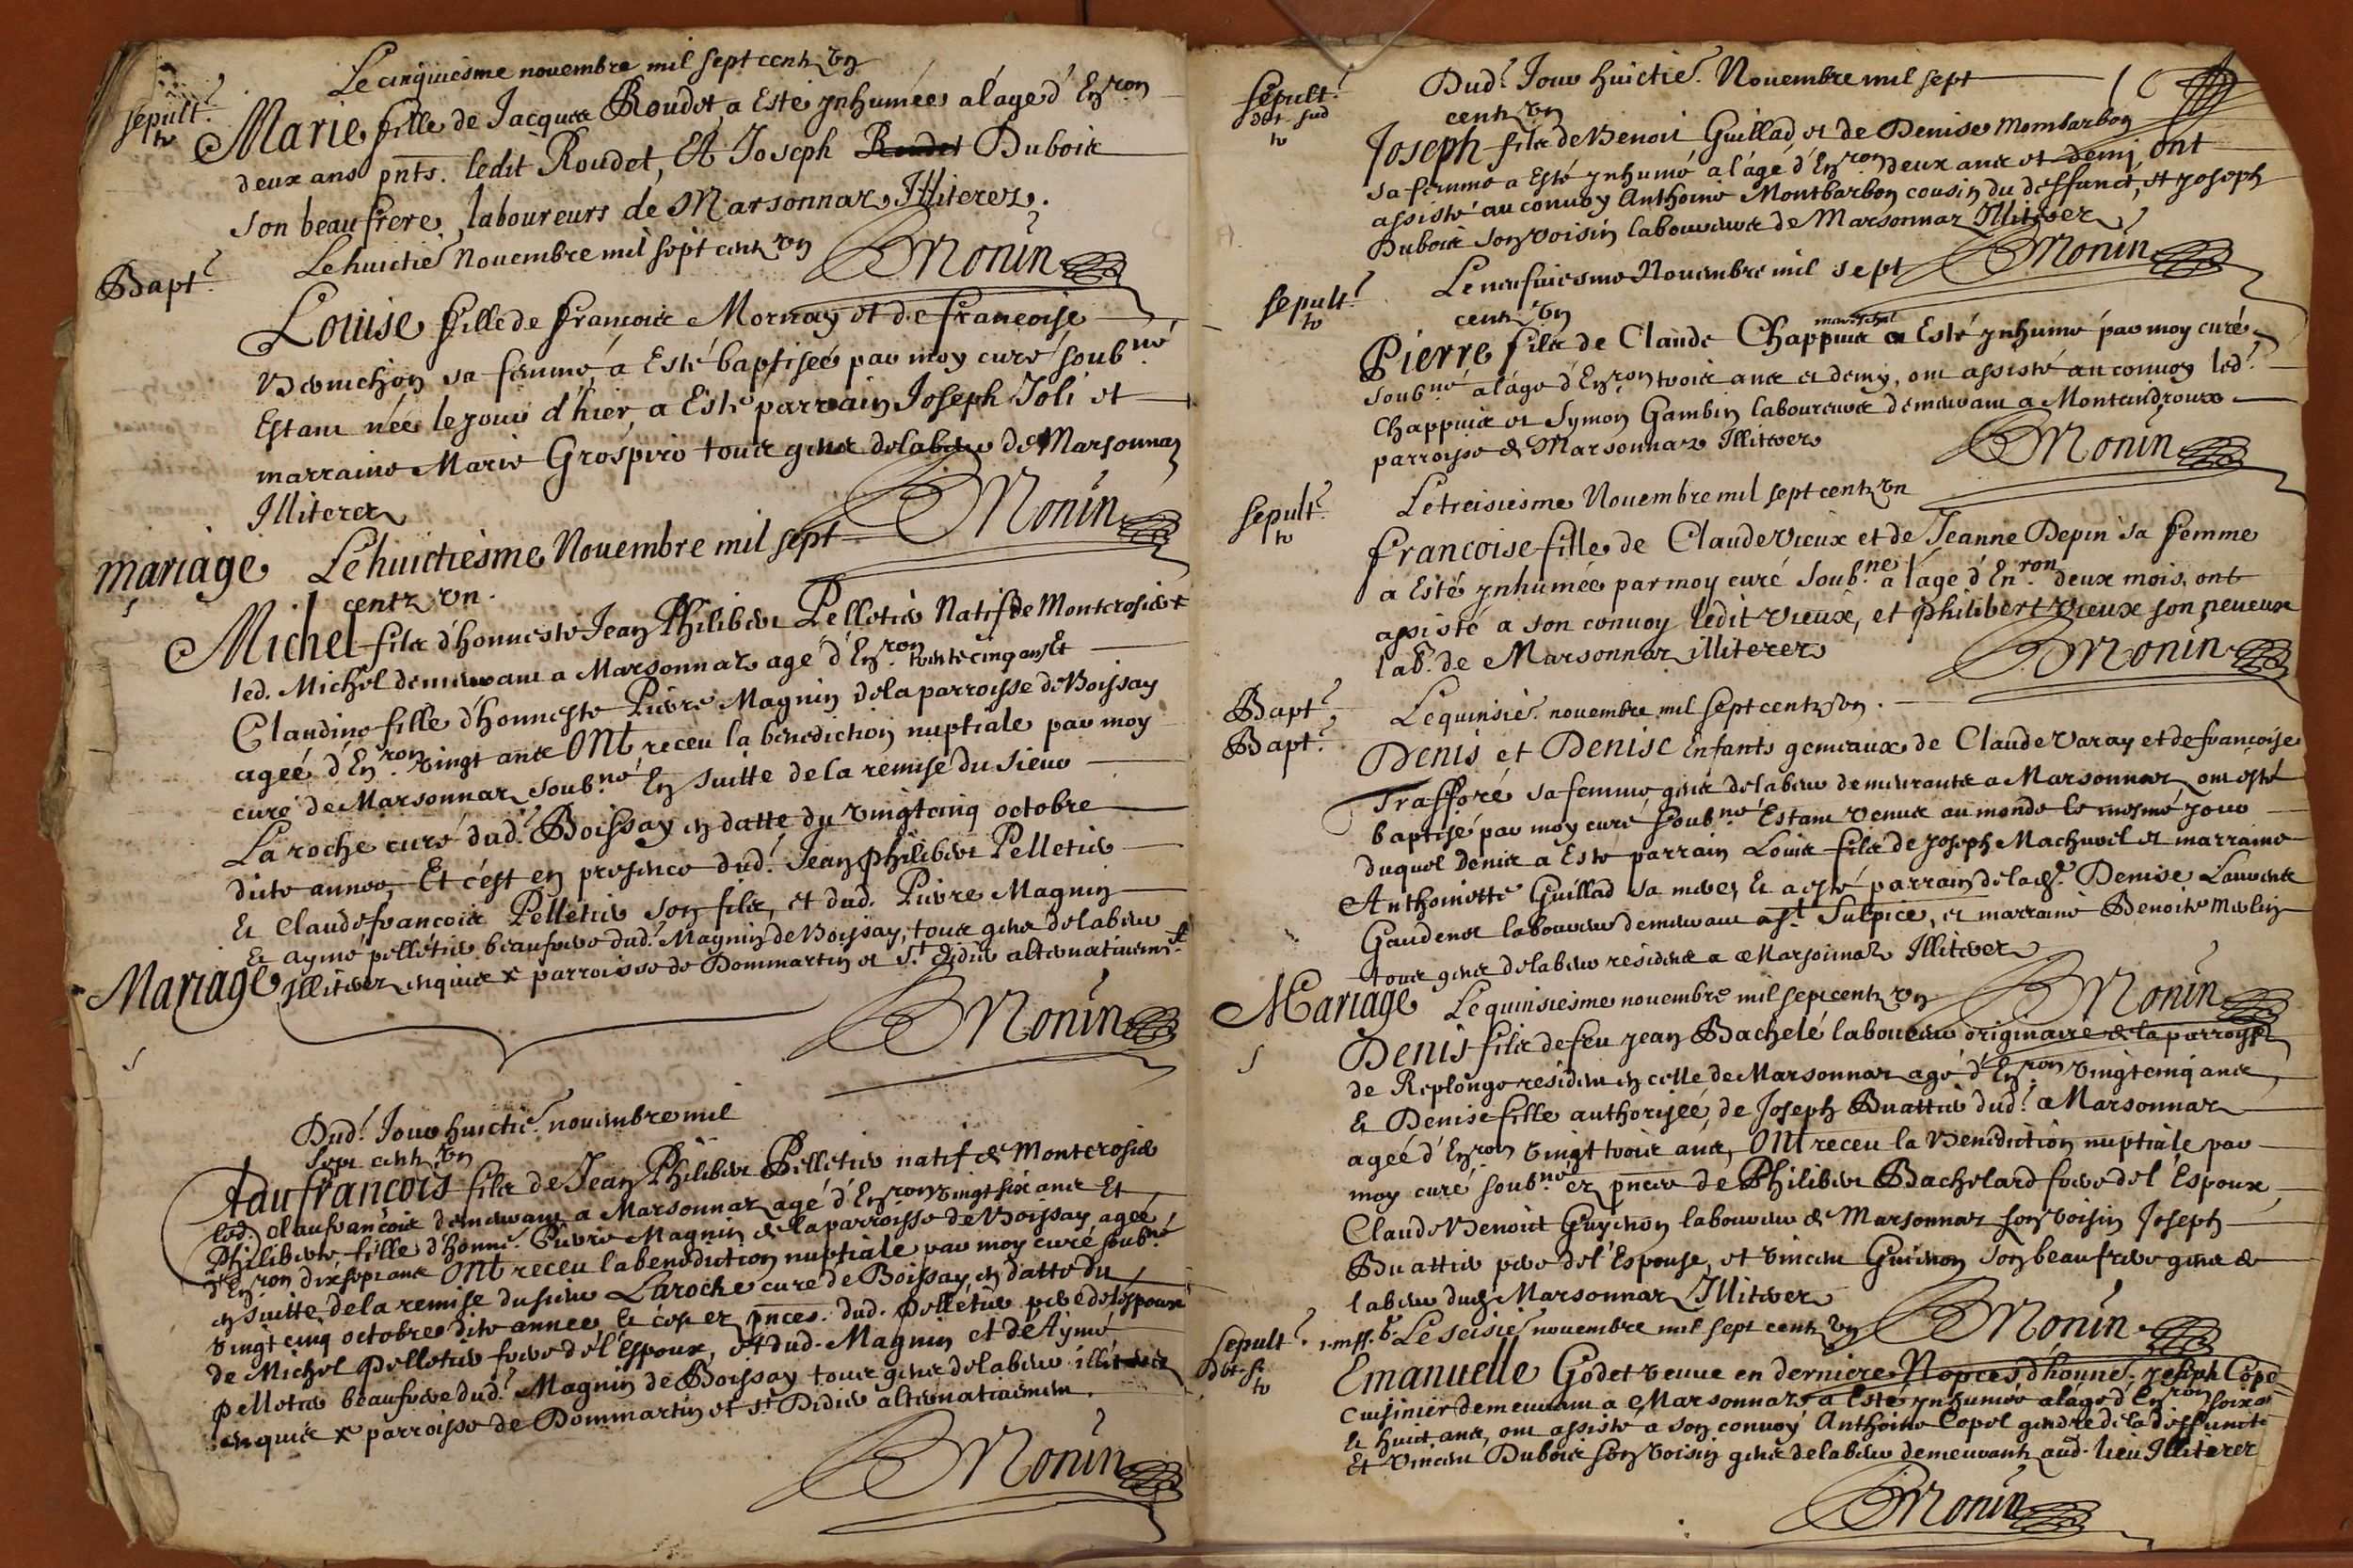 Le cinquiesme novembre mil sept cent un
sepult.re
Marie fille de Jacques Roudet a Esté ynhumée a lage d'Environ
deux ans pnts. ledit Roudet, Et Joseph Roudet Dubois
son beaufrere laboureurs de Marsonnaz Illiterez.
Le huictie Novembre mil sept cent un
Monin
Bapt.
Louise fille de francois Mornay et de françoise
sa femme, a Esté baptiseé par moy curé soub.né
Estant née le jour d'hier, a Esté parrain Joseph Joli et
marraine Marie Grospire tous gens de labeur de Marsonnaz
Illiterez
Monin
Mariage Le huictiesme Novembre mil sept
centz un.
Michel fils d'honneste Jean Philibert Pelletier Natif de Montcrosier
led. Michel demeurant a Marsonnaz agé d'Environ trente cinq ans Et
Claudine fille d'honneste Pierre Magnin de la parroisse de Boissay
ageé d'Environ vingt ans Ont receu la benediction nuptiale par moy
curé de Marsonnaz soub.né En suitte de la remise du sieur
La roche curé dud. Boissay en datte du vingtcinq octobre
dite annee, Et c'est en presence dud. Jean philibert Pelletier
Et Claude francois Pelletier son fils, et dud. Pierre Magnin
Et aymé pelletier beaufrere dud. Magnin de Boissay, tous gens de labeur
Mariage Illiterez enquis x parroisse de Dommartin et St. didier alternativemt.
Monin
Dud. Jour huictie. novembre mil
sept cent un
Claufrançois fils de Jean Philibert Pelletier natif de Montcrosier
led. claufrançois demeurant a Marsonnaz agé d'Environ vingt six ans Et
Philiberte fille d'honne. Pierre Magnin de la parroisse de Boissay ageé
d'Environ dix sept ans Ont receu la benediction nuptiale par moy curé soub.né
en suitte de la remise du sieur Laroche curé de Boissay en datte du
vingt cinq octobre dite annee Et c'est ez pnces. dud. Pelletier pere de l'espoux
de Michel Pelletier frere de l'Espoux, et dud. Magnin et de Aymé
pelletier beaufrere dud. Magnin de Boissay tous gens de labeur illiterez
enquis x parroisse de Dommartin et St Didier alternativement.
Monin
sepult.re
Dud. Jour huictie. Novembre mil sept
cent un
Joseph fils de Benoit Guillad, et de Denise Mombarbon
sa femme a Esté ynhumé a l'agé d'Environ deux ans et demi, ont
assisté au convoy Anthoine Montbarbon cousin du deffunct, et Joseph
Dubois son voisin laboureurs de Marsonnaz Illiterez
Monin
sepult.re
Le neufviesme Novembre mil sept
cent un
mareschal
Pierre fils de Claude Chappuis a Esté ynhumé par moy curé
soub.né a l'age d'Environ trois ans et demy, ont assisté au convoy led.
Chappuis et Symon Gambin laboureurs demeurant a Montandroux
parroisse de Marsonnaz Illiterez
Monin
sepult.re
Le treisiesme Novembre mil sept centz un
francoise fille de Claude Vieux et de Jeanne Depin sa femme
a Esté ynhumée par moy curé soub.né a l'age d'Environ deux mois, ont
assisté a son convoy ledit Vieux, et philibert Vieux son neveux
lab. de Marsonnaz illiterez
Monin
Bapt. Le quinsie. novembre mil sept centz un.
Bapt.
Denis et Denise Enfants gemeaux de Claude Varay et de francoise
Trafforé sa femme gens de labeur demeurants a Marsonnaz ont esté
baptisé par moy curé soub.né Estant venus au monde le mesme jour
duquel Denis a Esté parrain Louis fils de joseph Machuret et marraine
Anthoinette Guillad sa mere, Et a esté parrain de lad. Denise Laurent
Gaudenet laboureur demeurant a St. Sulpice, et marraine Benoite Merlin
tous gens de labeur residents a Marsonnaz Illiterez
Monin
Mariage Le quinsiesme novembre mil sept centz un
Denis fils de feu jean Bachelé laboureur originaire de la parroisse
de Replonge resident en celle de Marsonnaz agé d'Environ vingtcinq ans,
Et Denise fille authoriseé, de Joseph Buattier dud. a Marsonnaz
ageé d'Environ vingt trois ans, Ont receu la Benediction nuptiale par
moy curé soub.né ez pnces de Philibert Bachelard frere de l'Espoux
Claude Benoict Guychon laboureur de Marsonnaz son voisin Joseph
Buattier pere de l'Espouse, et vincent Guichon son beaufrere gens de
labeur dud. Marsonnaz Illiterez
Monin
sepult. Le seisie. novembre mil sept centz un
Emanuelle Godet veuve en derniere Nopces d'honne. joseph Cope
cuisinier demeurant a Marsonnaz a Esté ynhumée a l'age d'Environ soixante
Et huict ans, ont assisté a son convoy Anthoine Copel gendre de la deffuncte
Et vincent Dubois son voisin gens de labeur demeurants aud. lieu Illiterez
Monin